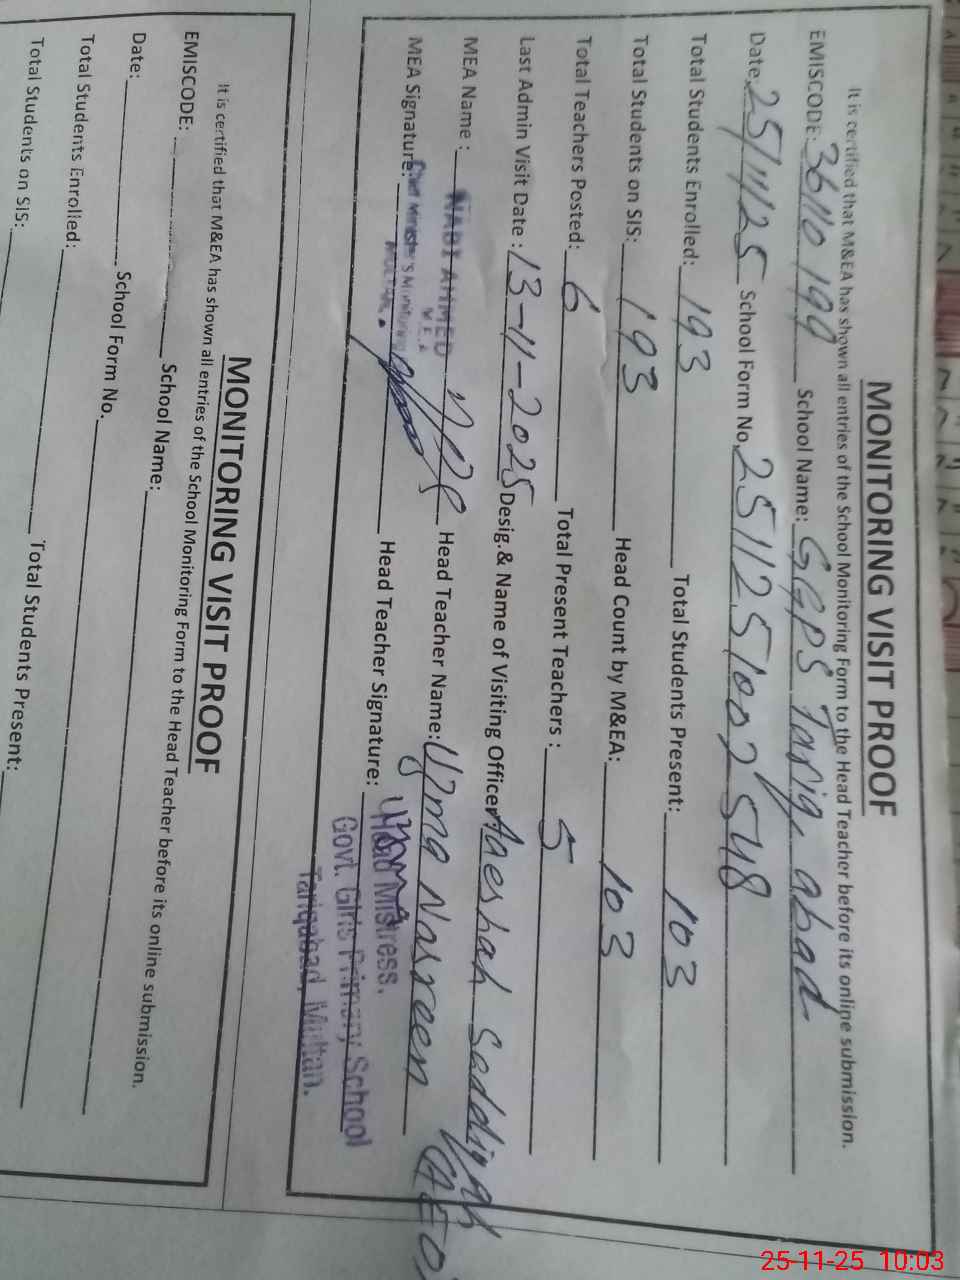 MONITORING VISIT PROOF
It is certified that M&EA has shown all entries of the School Monitoring Form to the Head Teacher before its online submission.
EMISCODE: 36110199 School Name: GGPS Tariq abad
Date: 25/11/25 School Form No. 2511251002548
Total Students Enrolled: 193 Total Students Present: 103
Total Students on SIS: 193 Head Count by M&EA: 103
Total Teachers Posted: 6 Total Present Teachers : 5
Last Admin Visit Date : 13-11-2025 Desig.& Name of Visiting Officer: Aaeshah Saddiqah AEO
MEA Name : NABI AHMED Head Teacher Name: Uzma Nasreen
M.E.A
MEA Signature: Chief Minister's Monitoring Head Teacher Signature: Uzma
MULTAN.
Head Mistress.
Govt. Girls Primary School
Tariqabad, Multan.
MONITORING VISIT PROOF
It is certified that M&EA has shown all entries of the School Monitoring Form to the Head Teacher before its online submission.
EMISCODE: School Name:
Date: School Form No.
Total Students Enrolled:
Total Students on SIS: Total Students Present:
25-11-25 10:03